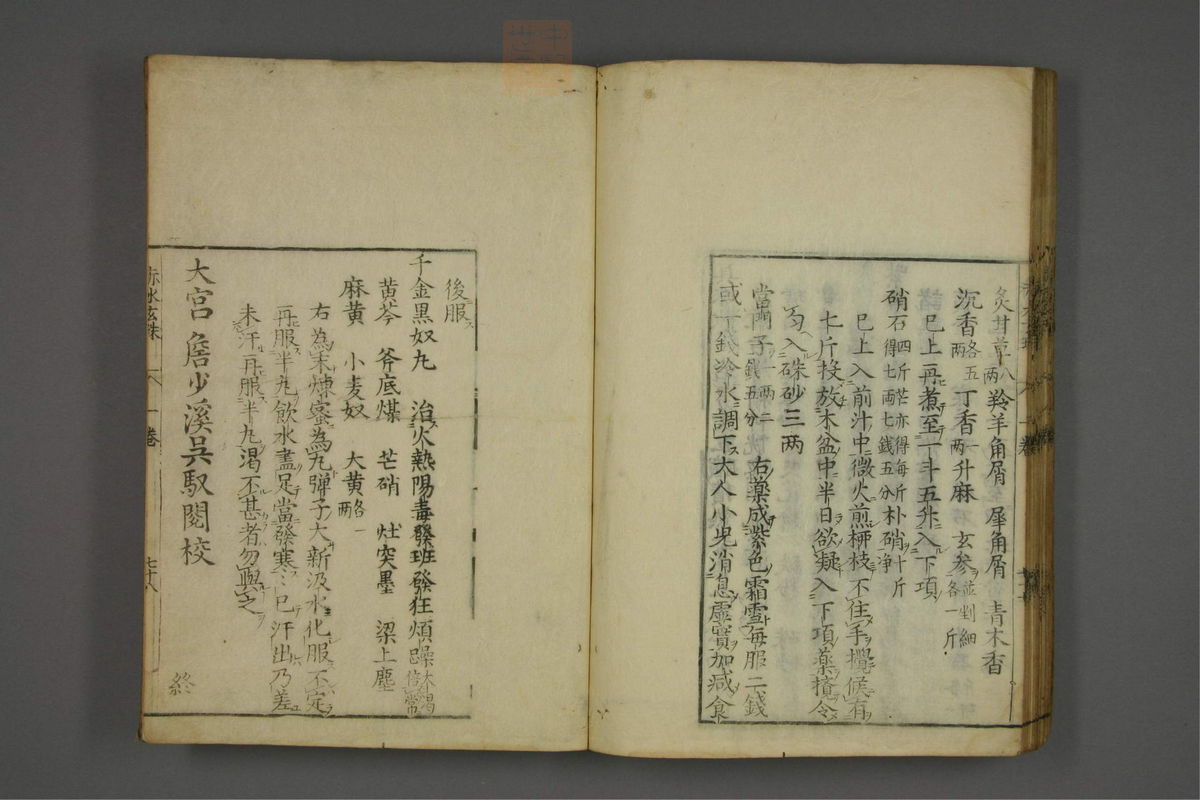 炙甘草八两 羚羊角屑 犀角屑 青木香
沉香各五两 丁香一两 升麻 玄参並剉細各一斤
已上再煮至一斗五升入下項
硝石四斤芒亦得每斤得七两七錢五分 朴硝净十斤
已上入前汁中微火煎柳枝不住手攪候有
七斤投放木盆中半日欲凝入下項藥攪令
匀入硃砂三两
當門子一两二錢五分 右藥成紫色霜雪每服二錢
或一錢冷水調下大人小児消息虚實加减食
後服
千金黑奴丸 治火熱陽毒發班發狂煩躁大渴倍常
黄芩 釜底煤 芒硝 灶突墨 梁上塵
麻黄 小麦奴 大黄各一两
右為末煉蜜為丸彈子大新汲水化服不定
再服半丸飲水盡足當發寒寒已汗出乃差
未汗再服半丸渴不甚者勿與之
大宫 詹少溪吳馭閲校
終
赤水玄珠 一卷 七十八